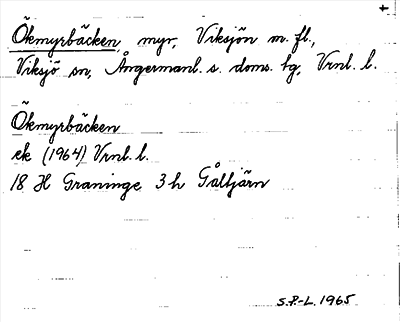 Ökmyrbäcken, myr, Viksjön m. fl.,
Viksjö sn, Ångermanl. s. doms. tg, Vrnl. l.
Ökmyrbäcken
ek (1964) Vrnl. l.
18 H Graninge 3 h Gåltjärn
S.P.-L. 1965